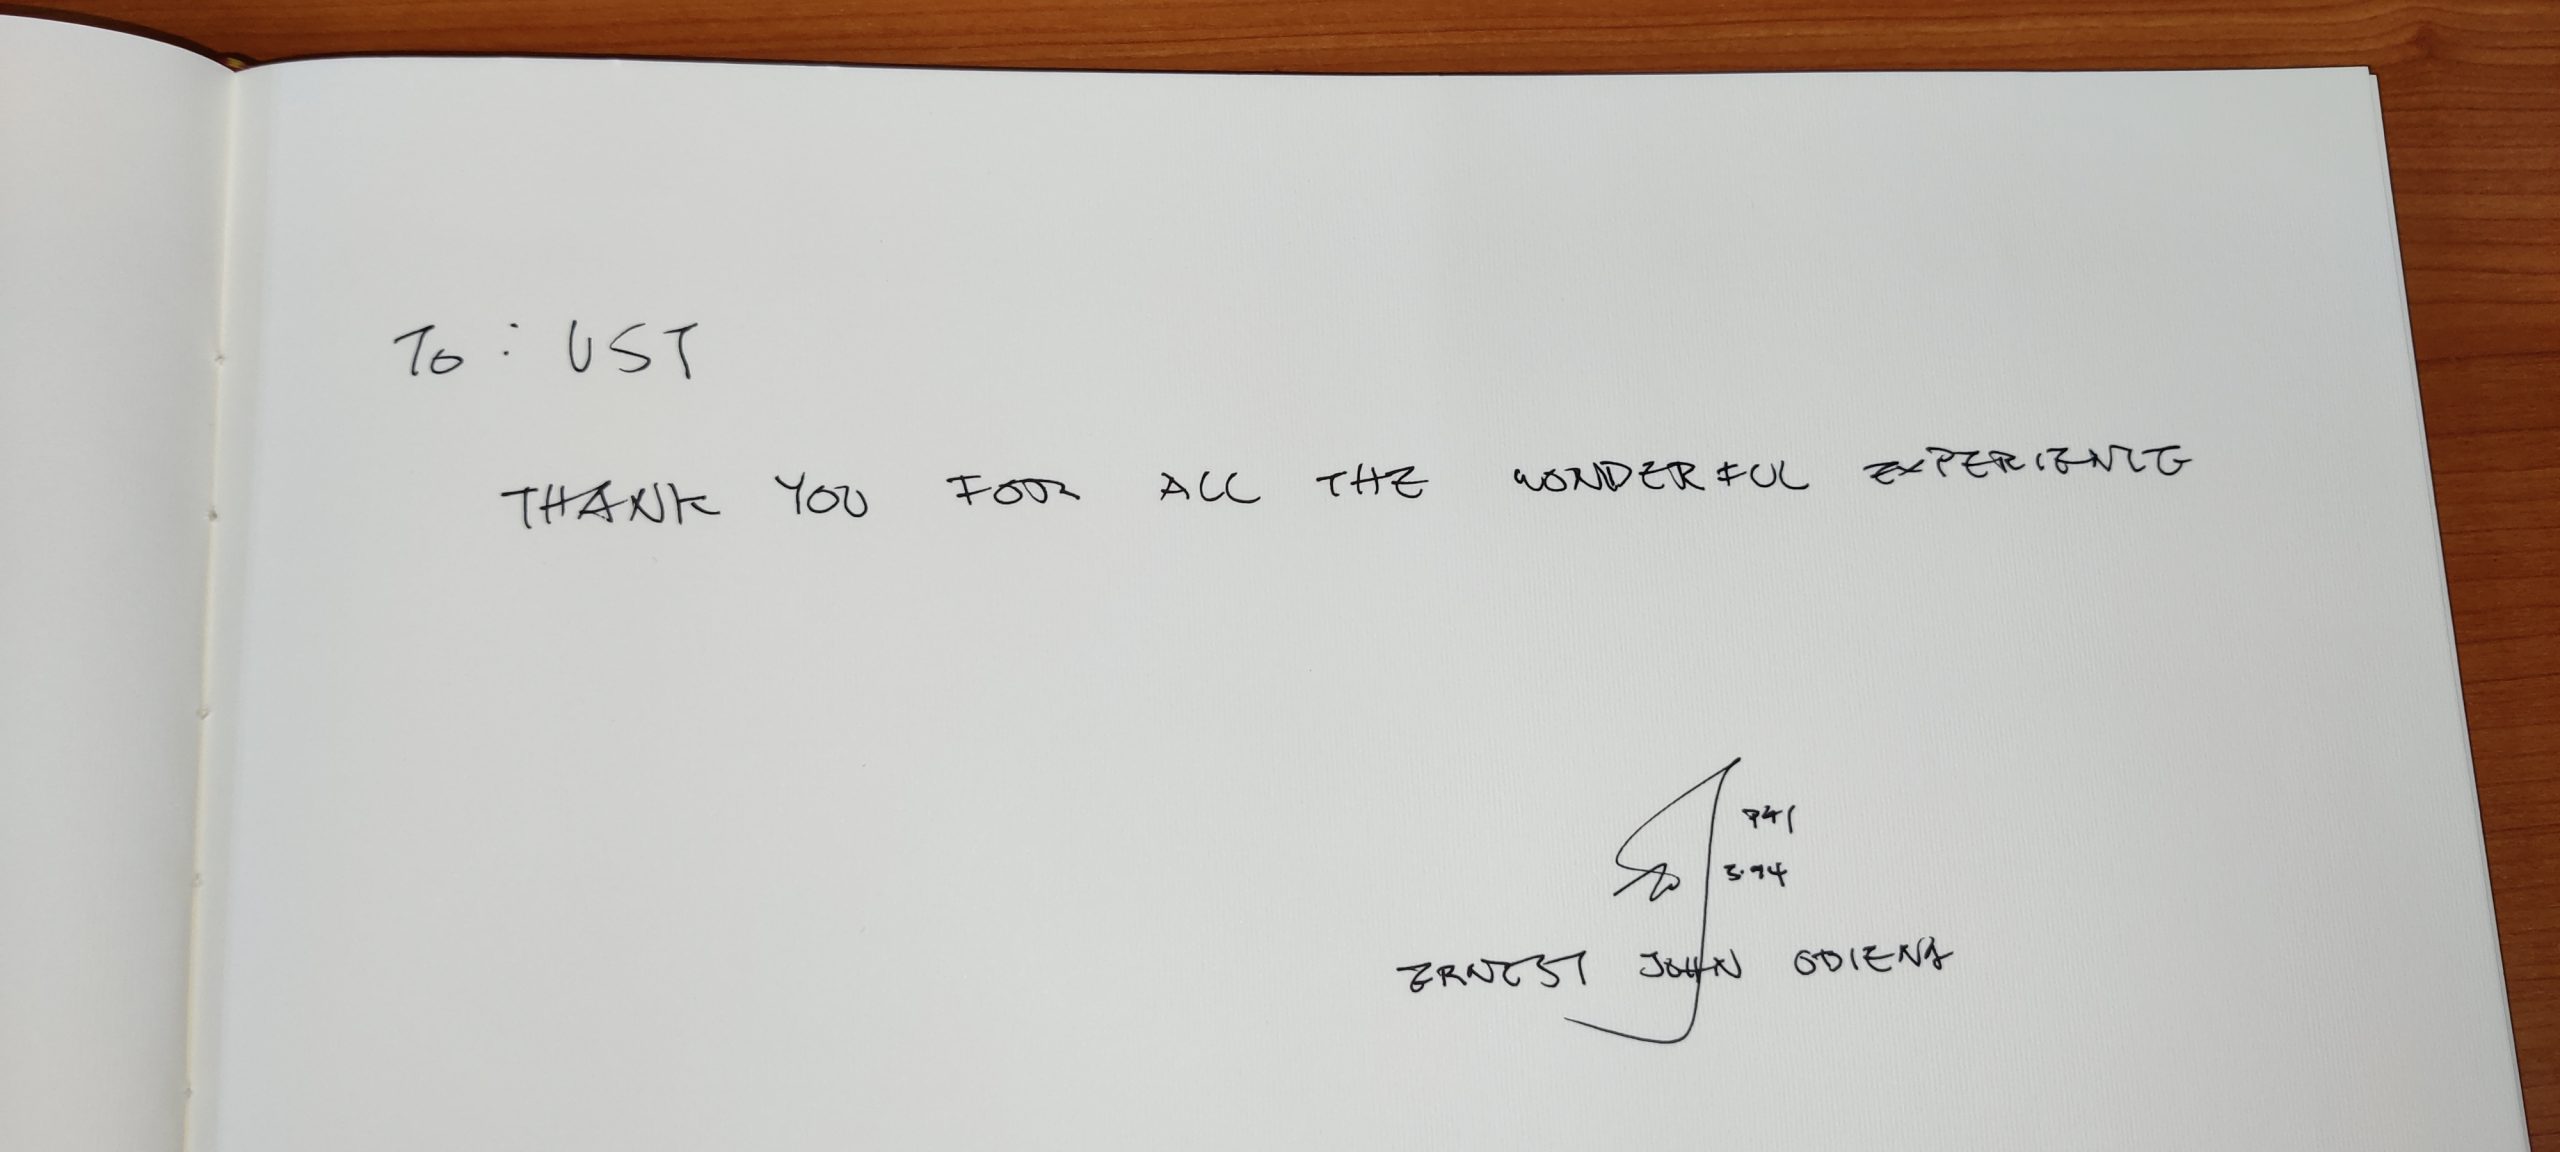 To: UST
THANK YOU FOOR ALL THE WONDERFUL EXPERIENCE
P41
3.94
ERNEST JOHN OBIENA